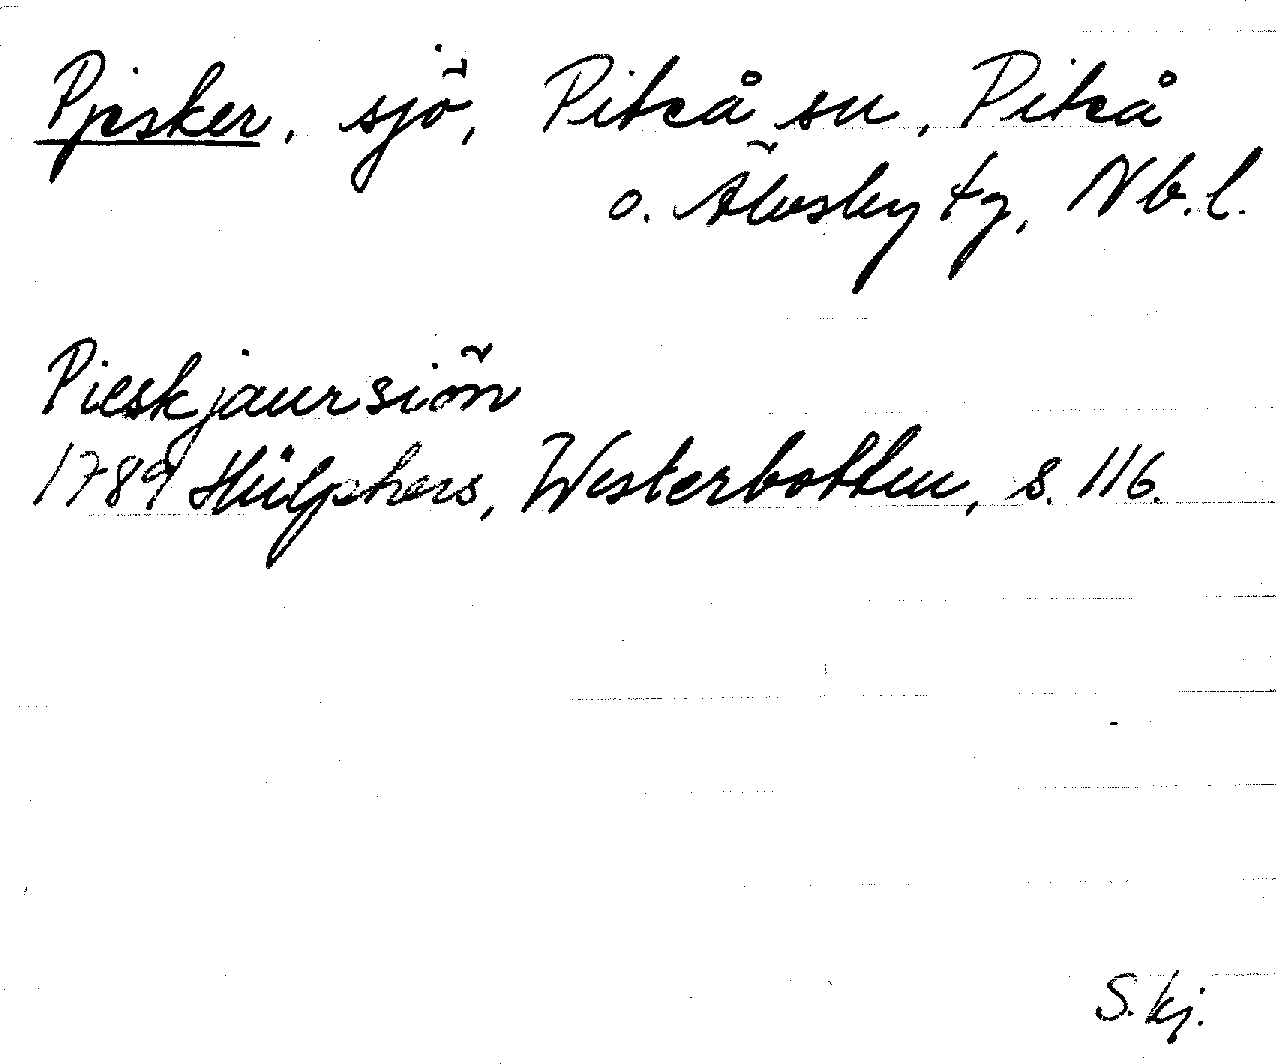 Pjesker, sjö, Piteå sn, Piteå
o. Älvsby tg, Nb.l.
Pieskjaursiön
1789 Hülphers, Westerbotten, s. 116.
S. kj.